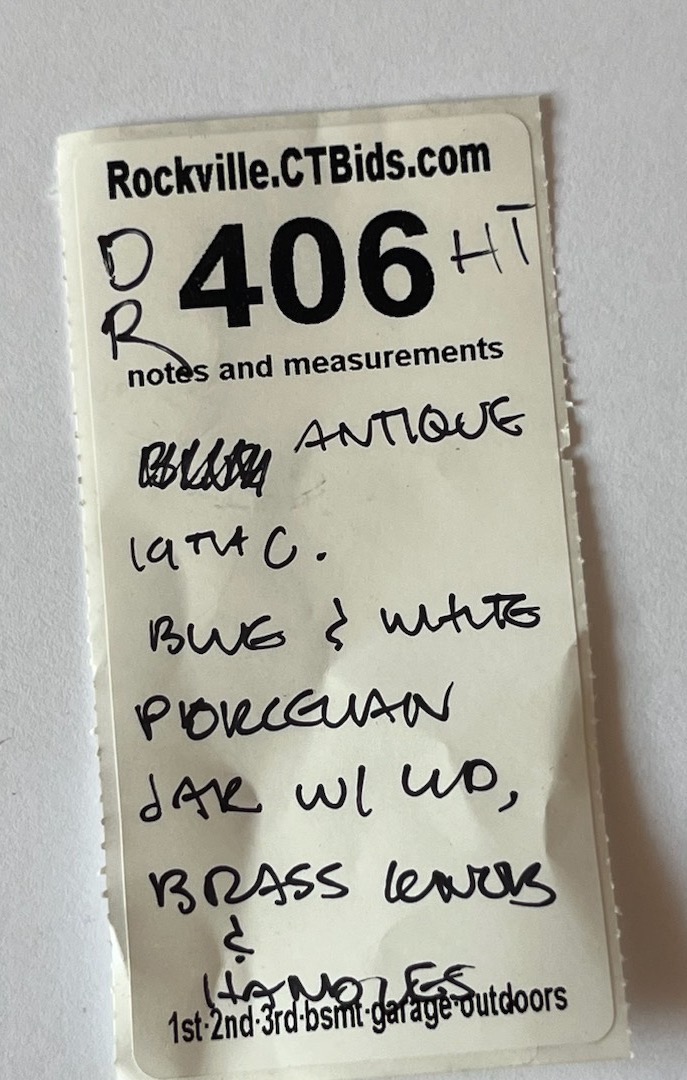 Rockville.CTBids.com
D R 406 HT
notes and measurements
ANTIQUE
19TH C.
BLUE & WHITE
PORCELIAN
JAR W/ LID,
BRASS KNOB
&
HANDLES
1st·2nd·3rd·bsmt·garage·outdoors